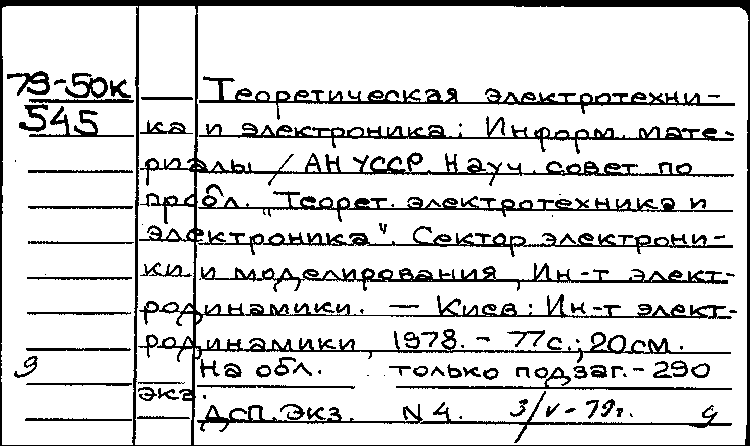 79-50к
545
Теоретическая электротехни-
ка и электроника: Информ. мате-
риалы / АН УССР. Науч. совет по
пробл. „Теорет. электротехника и
электроника“. Сектор электрони-
ки и моделирования, Ин-т элект-
родинамики. — Киев: Ин-т элект-
родинамики, 1978. - 77 с.; 20 см.
9 На обл. только подзаг. - 290
экз.
ДСП. Экз. N 4. 3/V-79г. 9